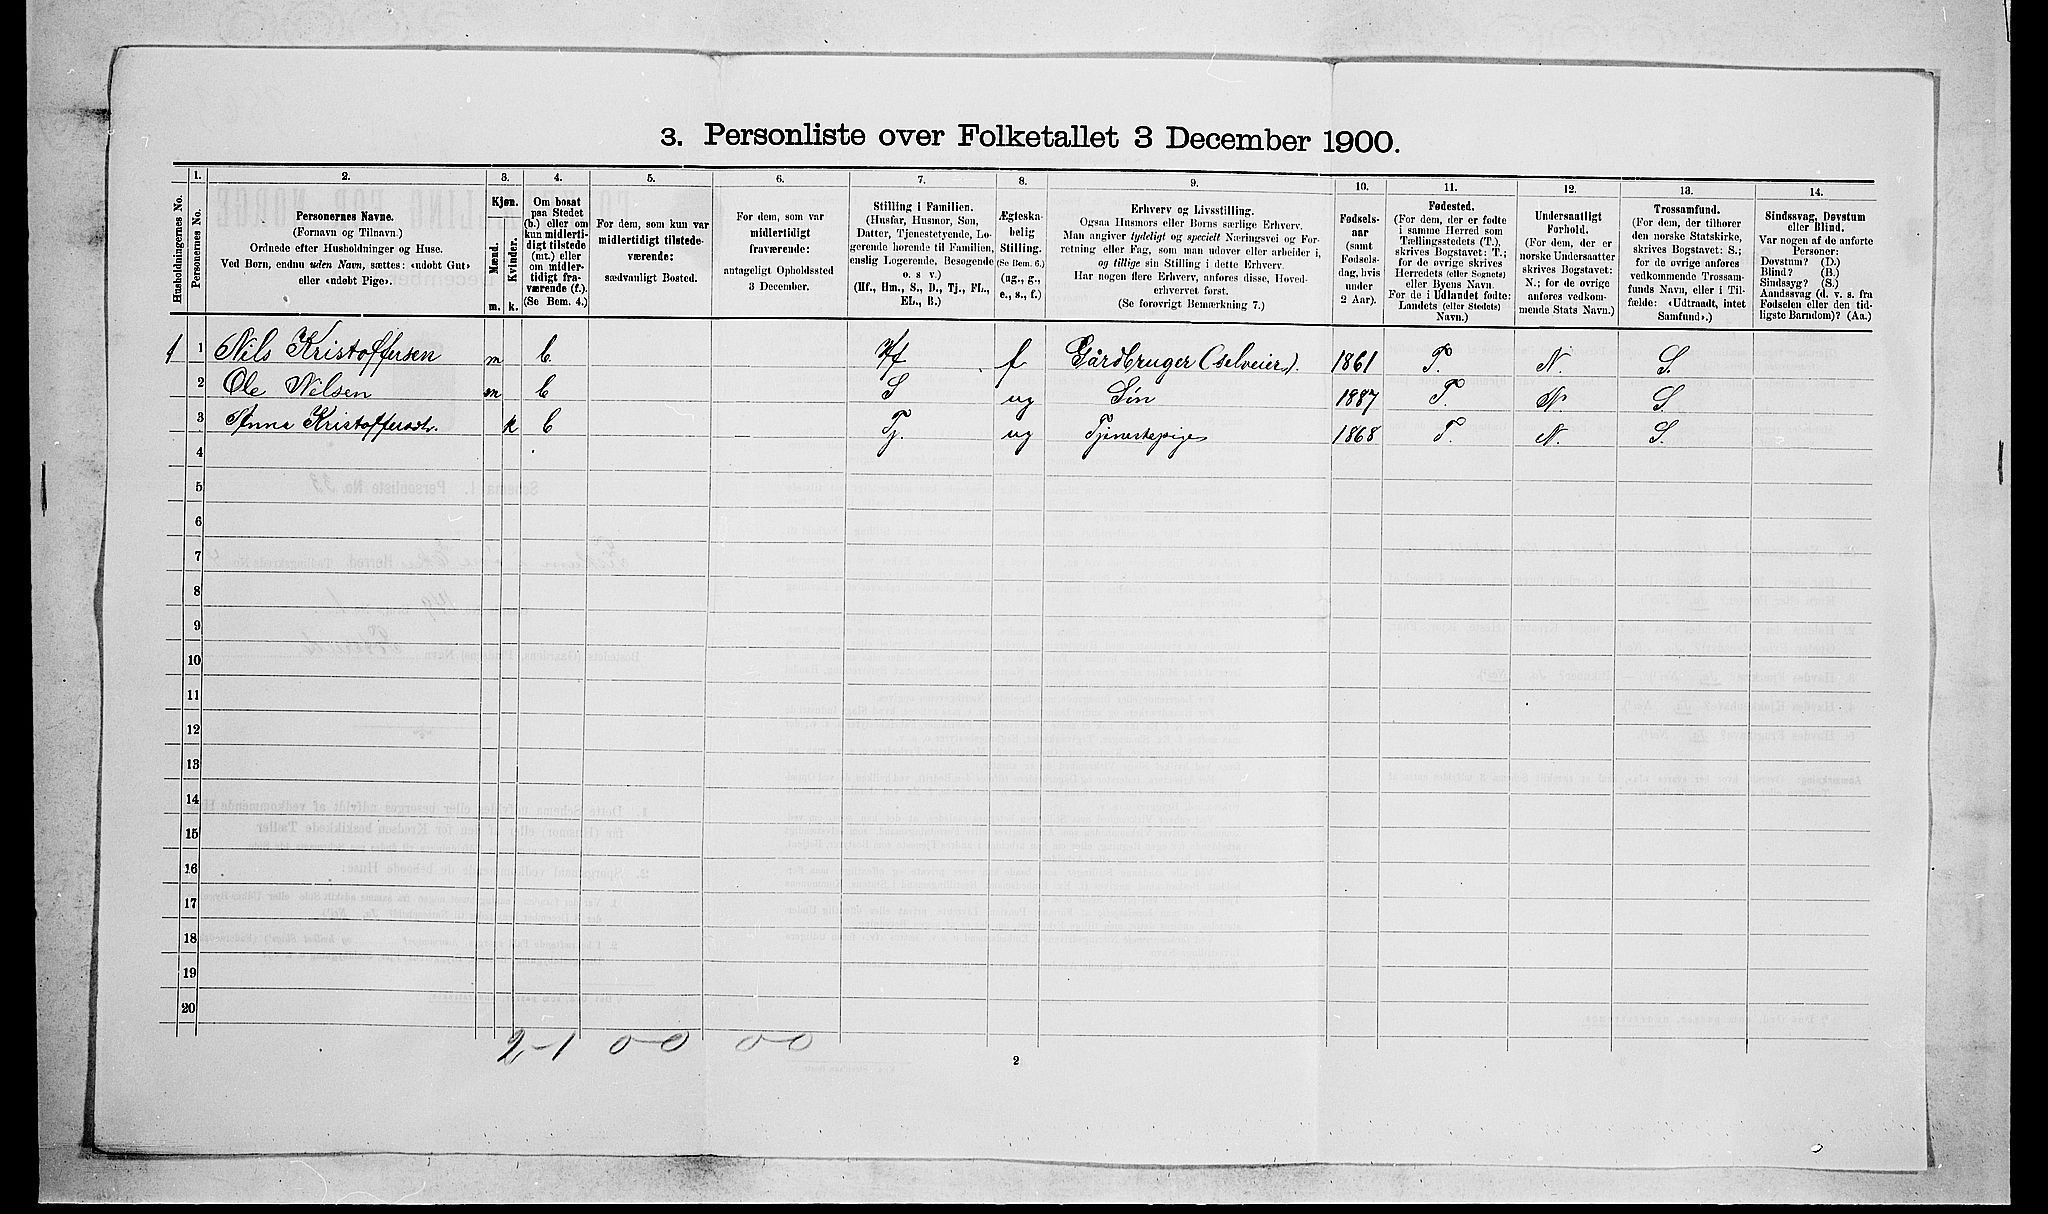 3. Personliste over Folketallet 3 December 1900.
1. 2. 3. 4. 5. 6. 7. 8. 9. 10. 11. 12. 13. 14.
Husholdningernes No.
Personernes No.
Personernes Navne.
(Fornavn og Tilnavn.)
Ordnede efter Husholdninger og Huse.
Ved Børn, endnu uden Navn, sættes: «udøbt Gut»
eller «udøbt Pige».
Kjøn.
Mænd.
Kvinder.
m. k.
Om bosat
paa Stedet
(b.) eller om
kun midlerti-
digt tilstede
(mt.) eller
om midler-
tidigt fra-
værende (f.).
(Se Bem. 4.)
For dem, som kun var
midlertidigt tilstede-
værende:
sædvanligt Bosted.
For dem, som var
midlertidigt
fraværende:
antageligt Opholdssted
3 December.
Stilling i Familien.
(Husfar, Husmor, Søn,
Datter, Tjenestetyende, Lo-
gerende hørende til Familien,
enslig Logerende, Besøgende
o. s v.)
(Hf., Hm., S., D., Tj., FL.,
EL., B.)
Ægteska-
belig
Stilling.
(Se Bem. 6.)
(ug., g.,
e., s., f.)
Erhverv og Livsstilling.
Ogsaa Husmors eller Børns særlige Erhverv.
Man angiver tydeligt og specielt Næringsvei og For-
retning eller Fag, som man udøver eller arbeider i,
og tillige sin Stilling i dette Erhverv.
Har nogen flere Erhverv, anføres disse, Hoved-
erhvervet først.
(Se forøvrigt Bemærkning 7.)
Fødsels-
aar
(samt
Fødsels-
dag, hvis
under
2 Aar).
Fødested.
(For dem, der er fødte
i samme Herred som
Tællingsstedets (T.),
skrives Bogstavet: T.;
for de øvrige skrives
Herredets (eller Sognets)
eller Byens Navn.
For de i Udlandet fødte:
Landets (eller Stedets)
Navn.)
Undersaatligt
Forhold.
(For dem, der er
norske Undersaatter
skrives Bogstavet:
N.; for de øvrige
anføres vedkom-
mende Stats Navn.)
Trossamfund.
(For dem, der tilhører
den norske Statskirke,
skrives Bogstavet: S.;
for de øvrige anføres
vedkommende Trossam-
funds Navn, eller i Til-
fælde: «Udtraadt, intet
Samfund».)
Sindssvag, Døvstum
eller Blind.
Var nogen af de anførte
Personer:
Døvstum? (D.)
Blind? (B.)
Sindssyg? (S.)
Aandssvag (d. v. s. fra
Fødselen eller den tid-
ligste Barndom)? (Aa.)
1 1 Nils Kristoffersen m b Hf f Gårdbruger (selveier). 1861 T. N. S.
2 Ole Nilsen m b S ug Søn 1887 T. N. S.
3 Anna Kristoffersdtr. k b Tj. ug Tjenestepige 1868 T. N. S.
4
5
6
7
8
9
10
11
12
13
14
15
16
17
18
19
20
2-1 0 0 0 0
2